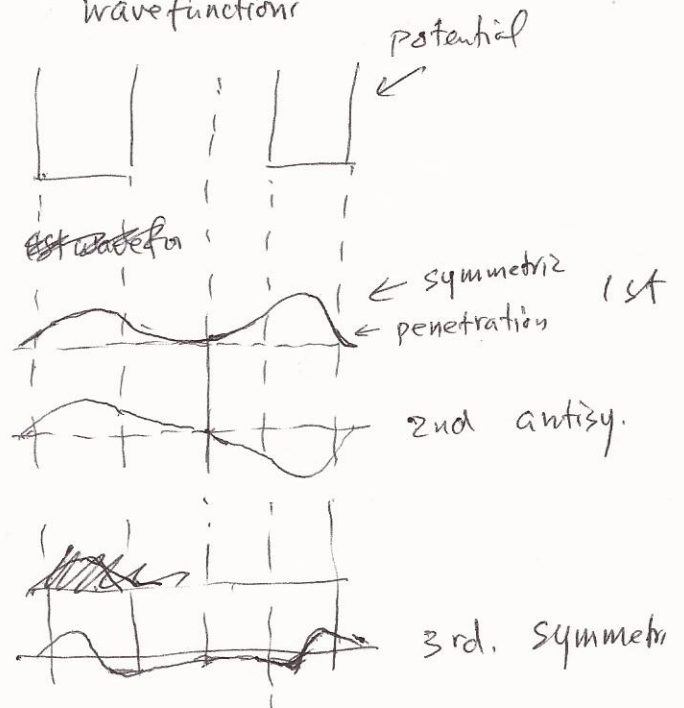 wavefunctions
potential
symmetric 1st
penetration
2nd antisy.
3rd. Symmetri